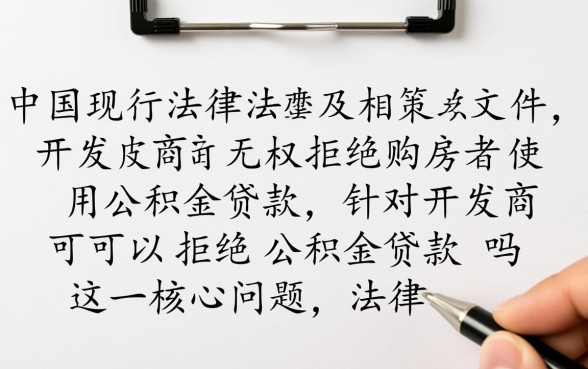 中国现行法律法及相策文件，
开发商无权拒绝购房者使
用公积金贷款，针对开发商
可可以拒绝公积金贷款 吗
这一核心问题，法律